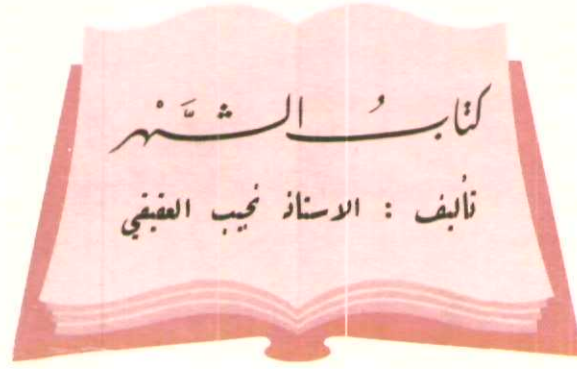 كتابُ الشَّهْر
تأليف : الاستاذ نجيب العقيقي